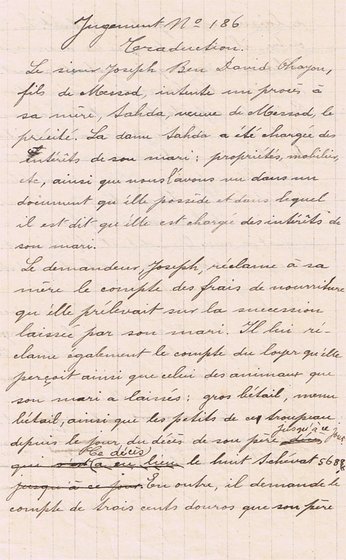 Jugement No 186
Traduction.
Le sieur Joseph Ben David Ohayon,
fils de Messod, intente un procès à
sa mère, Sahda, veuve de Messod, le
précité. La dame Sahda a été chargée des
intérêts de son mari : propriétés, mobilier,
etc, ainsi que nous l'avons vu dans un
document qu'elle possède et dans lequel
il est dit qu'elle est chargé des intérêts de
son mari.
Le demandeur, Joseph, réclame à sa
mère le compte des frais de nourriture
qu'elle prélevait sur la succession
laissée par son mari. Il lui ré-
clame également le compte du loyer qu'elle
perçoit ainsi que celui des animaux que
son mari a laissés : gros bétail, menu
bétail, ainsi que les petits de ce troupeau
depuis le jour, du décès de son père décès, jusqu'à ce jour
Ce décès
que s'est a eu lieu le huit Schévat 568
jusqu'à ce jour. En outre, il demande le
compte de trois cents douros que son père